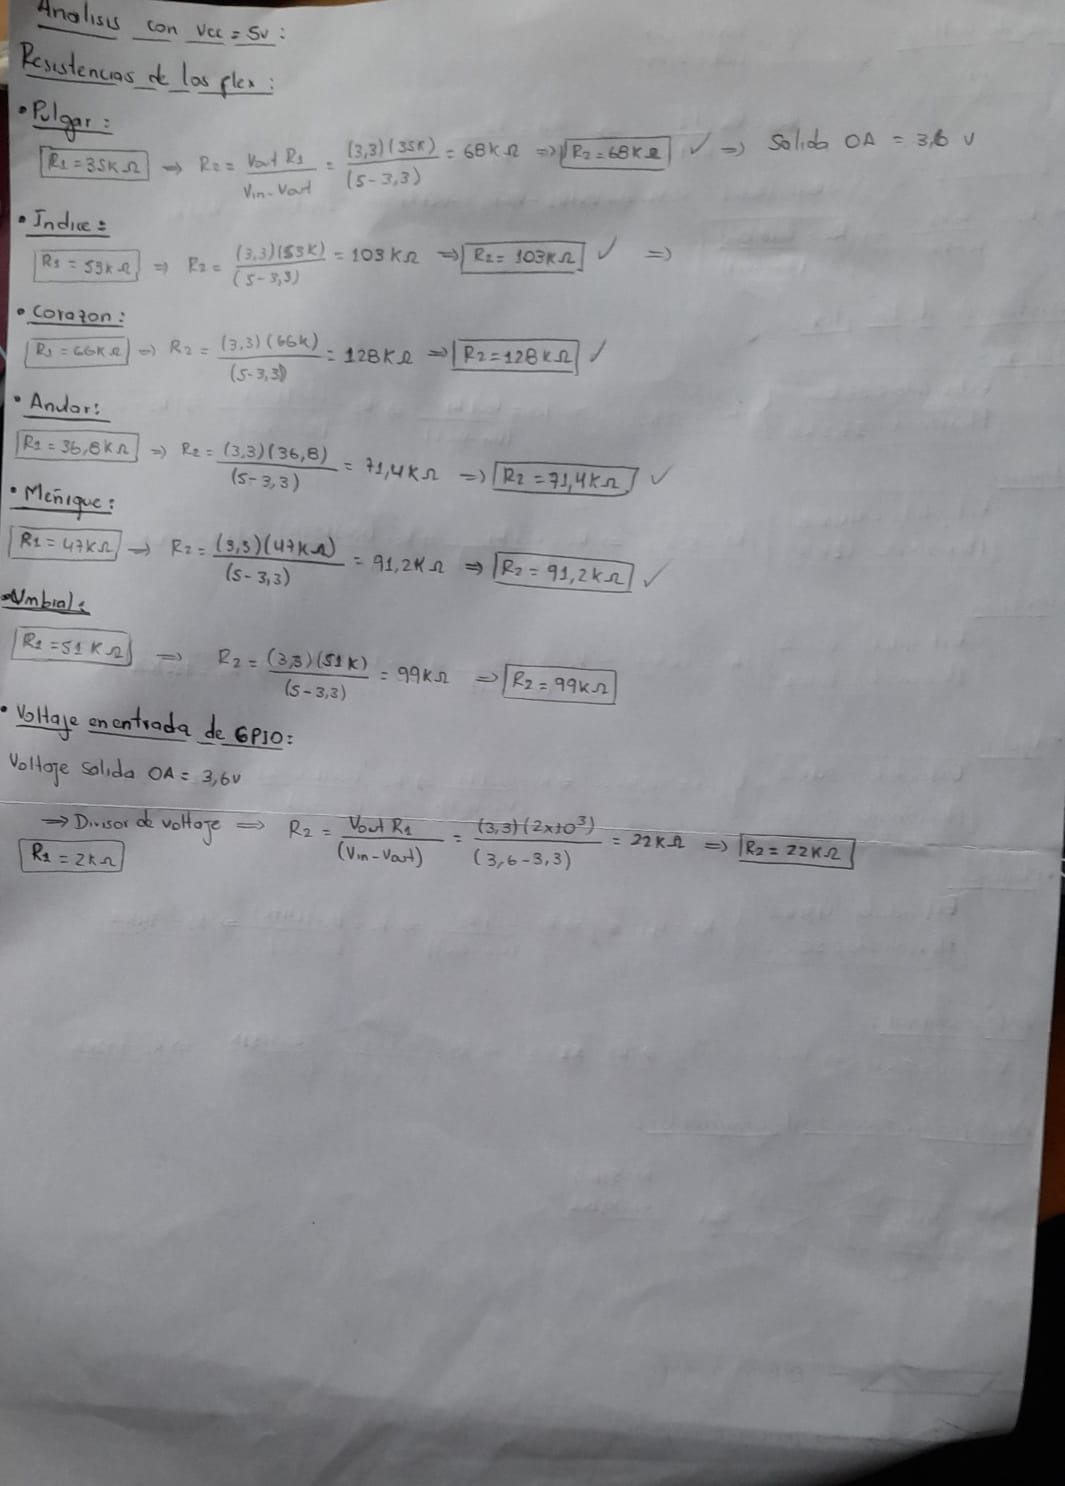 Analisis con Vcc = 5v:
Resistencias de los flex:
• Pulgar:
R1 = 35KΩ ⇒ R2 = Vout R1 / Vin - Vout = (3,3)(35K) / (5-3,3) = 68KΩ ⇒ R2 = 68KΩ ✓ ⇒ Salida OA = 3,6 V
• Indice:
R1 = 53KΩ ⇒ R2 = (3,3)(53K) / (5-3,3) = 103KΩ ⇒ R2 = 103KΩ ✓ ⇒
• Corazon:
R1 = 66KΩ ⇒ R2 = (3,3)(66K) / (5-3,3) = 128KΩ ⇒ R2 = 128KΩ ✓
• Anular:
R1 = 36,8KΩ ⇒ R2 = (3,3)(36,8) / (5-3,3) = 71,4KΩ ⇒ R2 = 71,4KΩ ✓
• Meñique:
R1 = 47KΩ ⇒ R2 = (3,3)(47KΩ) / (5-3,3) = 91,2KΩ ⇒ R2 = 91,2KΩ ✓
• Umbral:
R1 = 51KΩ ⇒ R2 = (3,3)(51K) / (5-3,3) = 99KΩ ⇒ R2 = 99KΩ
• Voltaje en entrada de GPIO:
Voltaje salida OA = 3,6v
⇒ Divisor de voltaje ⇒ R2 = Vout R1 / (Vin - Vout) = (3,3)(2x10³) / (3,6-3,3) = 22KΩ ⇒ R2 = 22KΩ
R1 = 2KΩ